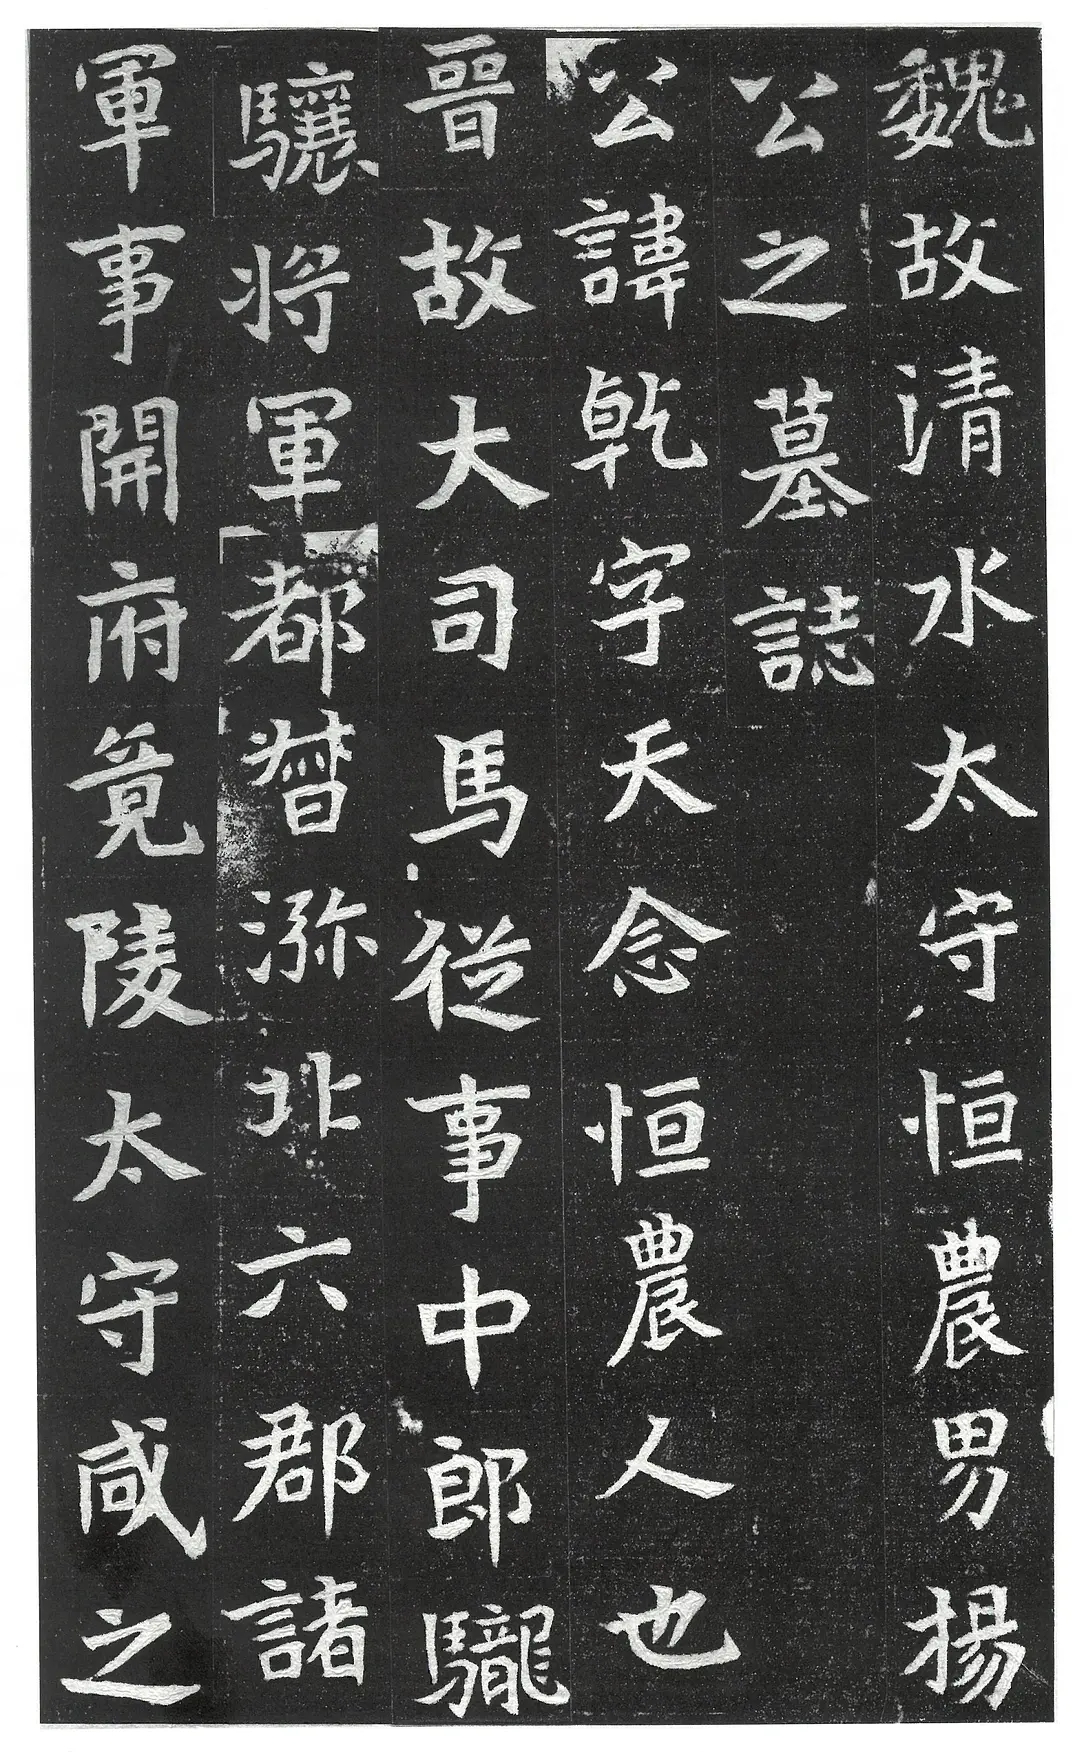 魏故清水太守恒農男揚
公之墓誌
公諱乹字天念恒農人也
晉故大司馬從事中郎䮾
驤將軍都督㳽北六郡諸
軍事開府竟陵太守咸之